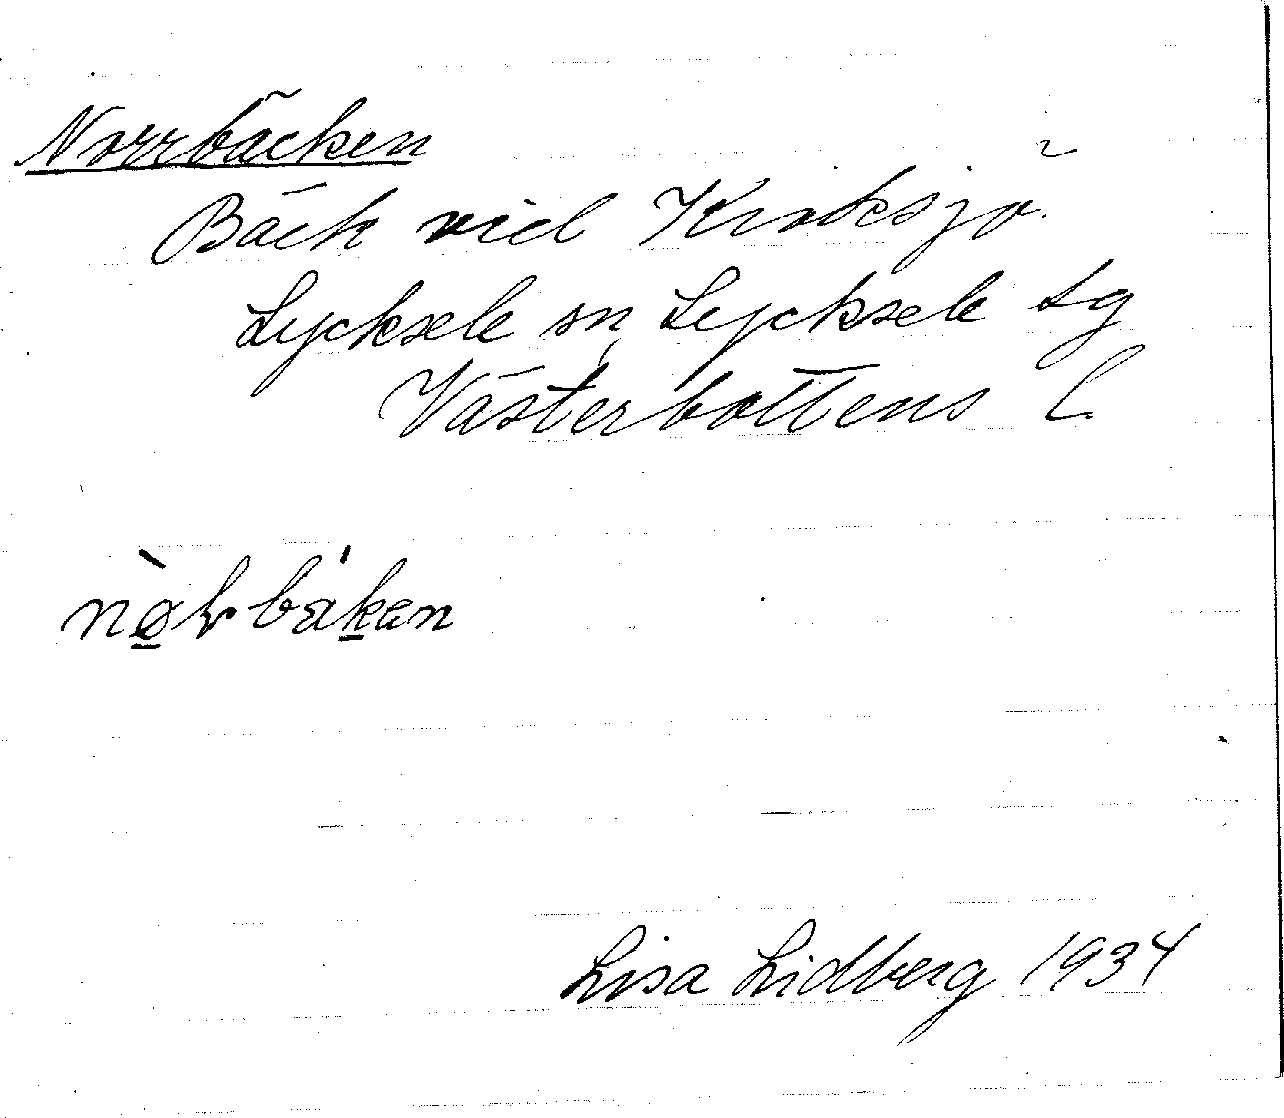 Norrbäcken
Bäck vid Kroksjö
Lycksele sn, Lycksele tg
Västerbottens l.
Lisa Lidberg 1934